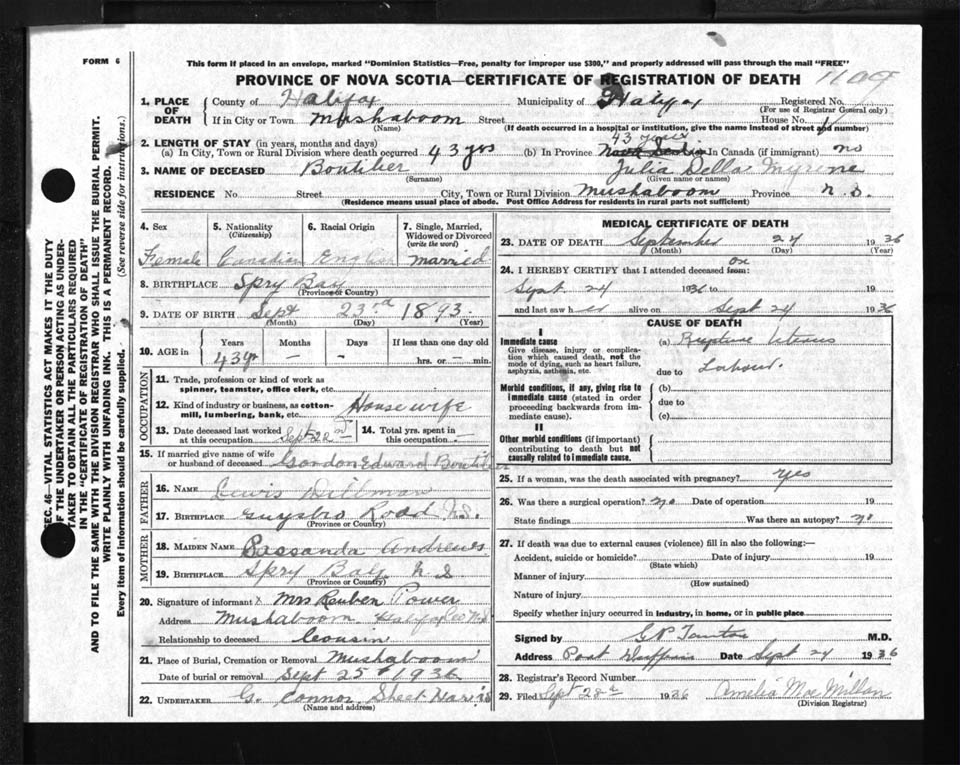 FORM 6
This form if placed in an envelope, marked "Dominion Statistics—Free, penalty for improper use $300," and properly addressed will pass through the mail "FREE"
PROVINCE OF NOVA SCOTIA—CERTIFICATE OF REGISTRATION OF DEATH
1. PLACE OF DEATH
County of Halifax Municipality of Halifax Registered No.
(For use of Registrar General only)
If in City or Town Mushaboom Street House No.
(Name) (If death occurred in a hospital or institution, give the name instead of street and number)
2. LENGTH OF STAY (in years, months and days) 43 years
(a) In City, Town or Rural Division where death occurred 43 yrs (b) In Province Nova Scotia In Canada (if immigrant) no
3. NAME OF DECEASED Boutilier Julia Della Myrene
(Surname) (Given name or names)
RESIDENCE No. Street City, Town or Rural Division Mushaboom Province N.S.
(Residence means usual place of abode. Post Office Address for residents in rural parts not sufficient)
4. Sex 5. Nationality (Citizenship) 6. Racial Origin 7. Single, Married, Widowed or Divorced (write the word)
Female Canadian English Married
8. BIRTHPLACE Spry Bay
(Province or Country)
9. DATE OF BIRTH Sept 23rd 1893
(Month) (Day) (Year)
10. AGE in Years Months Days If less than one day old
43 yr — — hrs. or — min.
OCCUPATION
11. Trade, profession or kind of work as spinner, teamster, office clerk, etc.
12. Kind of industry or business, as cotton-mill, lumbering, bank, etc. Housewife
13. Date deceased last worked at this occupation Sept 22nd 14. Total yrs. spent in this occupation —
15. If married give name of wife or husband of deceased Gordon Edward Boutilier
FATHER
16. NAME Lewis Dillman
17. BIRTHPLACE Guysbro Road N.S.
(Province or Country)
MOTHER
18. MAIDEN NAME Cassanda Andrews
19. BIRTHPLACE Spry Bay N S
(Province or Country)
20. Signature of informant x Mrs Reuben Power
Address Mushaboom Halifax Co N.S.
Relationship to deceased Cousin
21. Place of Burial, Cremation or Removal Mushaboom
Date of burial or removal Sept 25th 1936
22. UNDERTAKER G. Connor Sheet Harbor
(Name and address)
MEDICAL CERTIFICATE OF DEATH
23. DATE OF DEATH September 24 1936
(Month) (Day) (Year)
24. I HEREBY CERTIFY that I attended deceased from: on
Sept. 24 1936 to
and last saw her alive on Sept 24 1936
CAUSE OF DEATH
I
Immediate cause
Give disease, injury or complication which caused death, not the mode of dying, such as heart failure, asphyxia, asthenia, etc.
(a) Rupture Uterus
due to Labour.
Morbid conditions, if any, giving rise to immediate cause (stated in order proceeding backwards from immediate cause).
(b)
due to
(c)
II
Other morbid conditions (if important) contributing to death but not causally related to immediate cause.
25. If a woman, was the death associated with pregnancy? yes
26. Was there a surgical operation? no Date of operation 19
State findings Was there an autopsy? no
27. If death was due to external causes (violence) fill in also the following:—
Accident, suicide or homicide? Date of injury 19
(State which)
Manner of injury
(How sustained)
Nature of injury
Specify whether injury occurred in industry, in home, or in public place
Signed by M.D.
Address Port Dufferin Date Sept 24 1936
28. Registrar's Record Number
29. Filed Sept 28th 1936 Amelia MacMillan
(Division Registrar)
SEC. 46—VITAL STATISTICS ACT MAKES IT THE DUTY
OF THE UNDERTAKER OR PERSON ACTING AS UNDER-
TAKER TO OBTAIN ALL THE PARTICULARS REQUIRED
IN THE "CERTIFICATE OF REGISTRATION OF DEATH"
AND TO FILE THE SAME WITH THE DIVISION REGISTRAR WHO SHALL ISSUE THE BURIAL PERMIT.
WRITE PLAINLY WITH UNFADING INK. THIS IS A PERMANENT RECORD.
Every item of information should be carefully supplied. (See reverse side for instructions.)